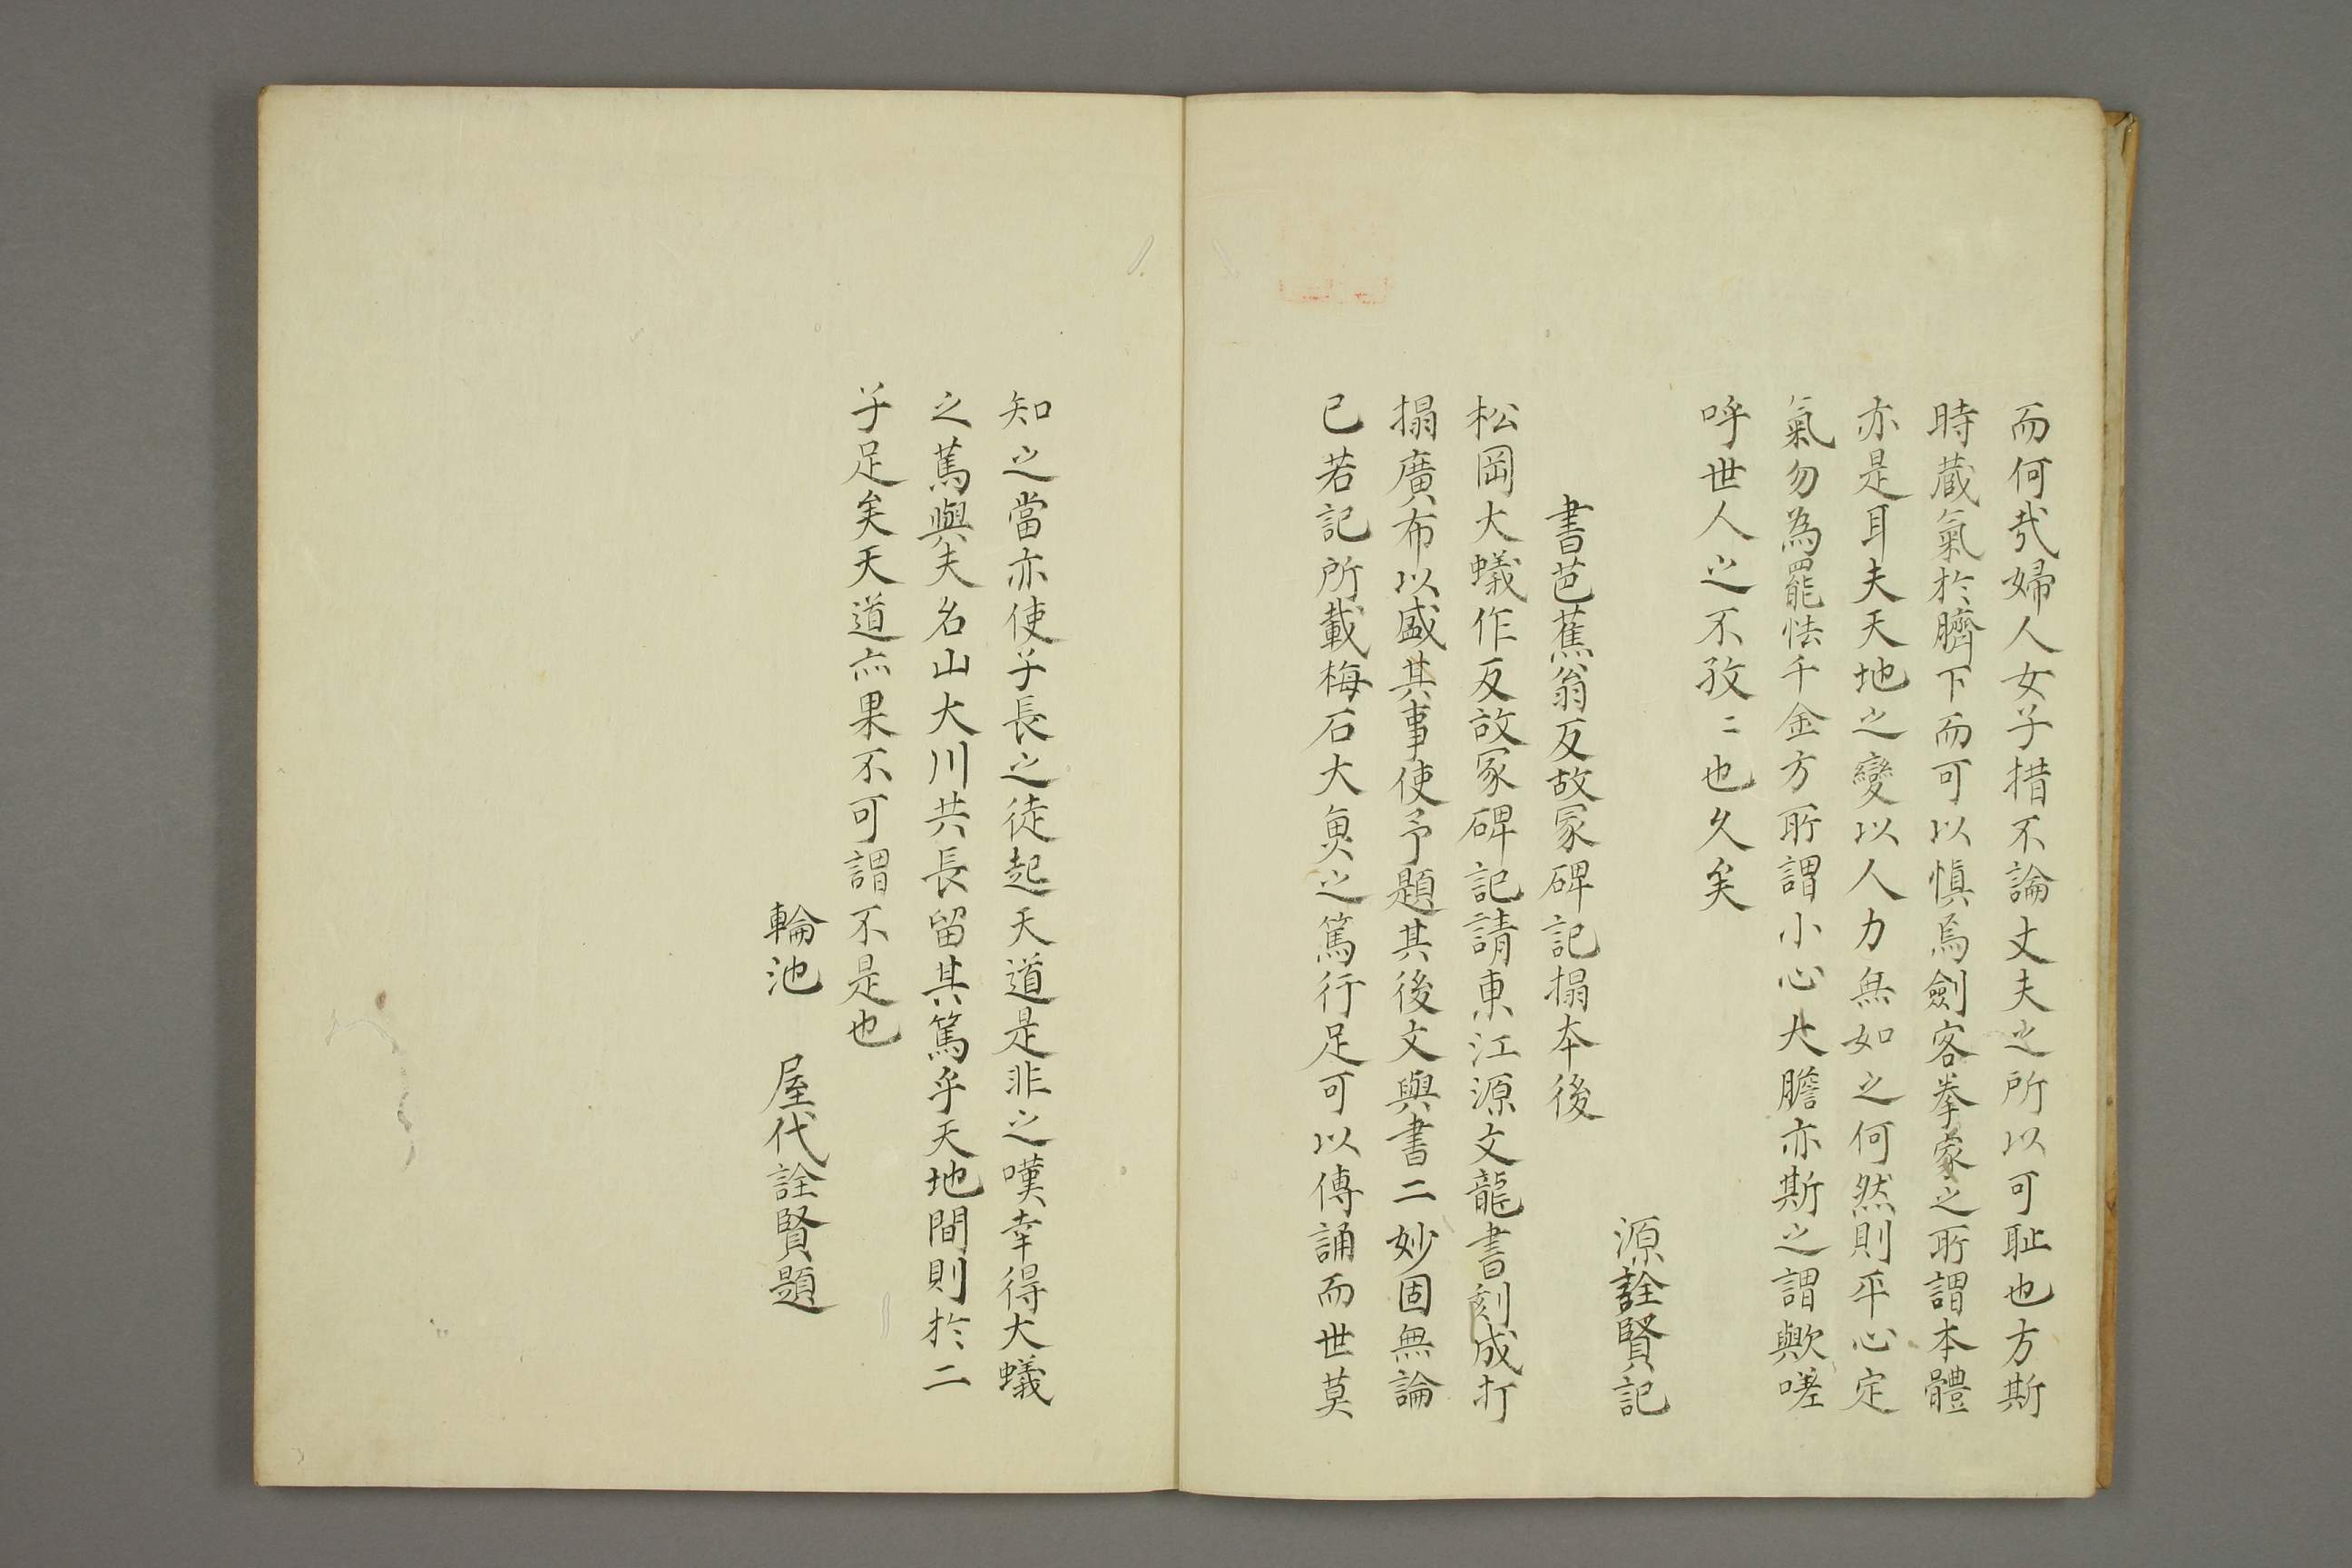 而何哉婦人女子措不論丈夫之所以可耻也方斯
時蔵氣於臍下而可以慎焉劍客拳家之所謂本體
亦是耳夫天地之變以人力無如之何然則平心定
氣勿為罷怯千金方所謂小心大膽亦斯之謂歟嗟
呼世人之不孜〻也久矣
源詮賢記
書芭蕉翁反故冢碑記搨本後
松岡大蟻作反故冢碑記請東江源文龍書刻成打
搨廣布以盛其事使予題其後文與書二妙固無論
已若記所載梅石大魚之篤行足可以傳誦而世莫
知之當亦使子長之徒起天道是非之嘆幸得大蟻
之篤與夫名山大川共長留其篤乎天地間則於二
子足矣天道亦果不可謂不是也
輪池　屋代詮賢題